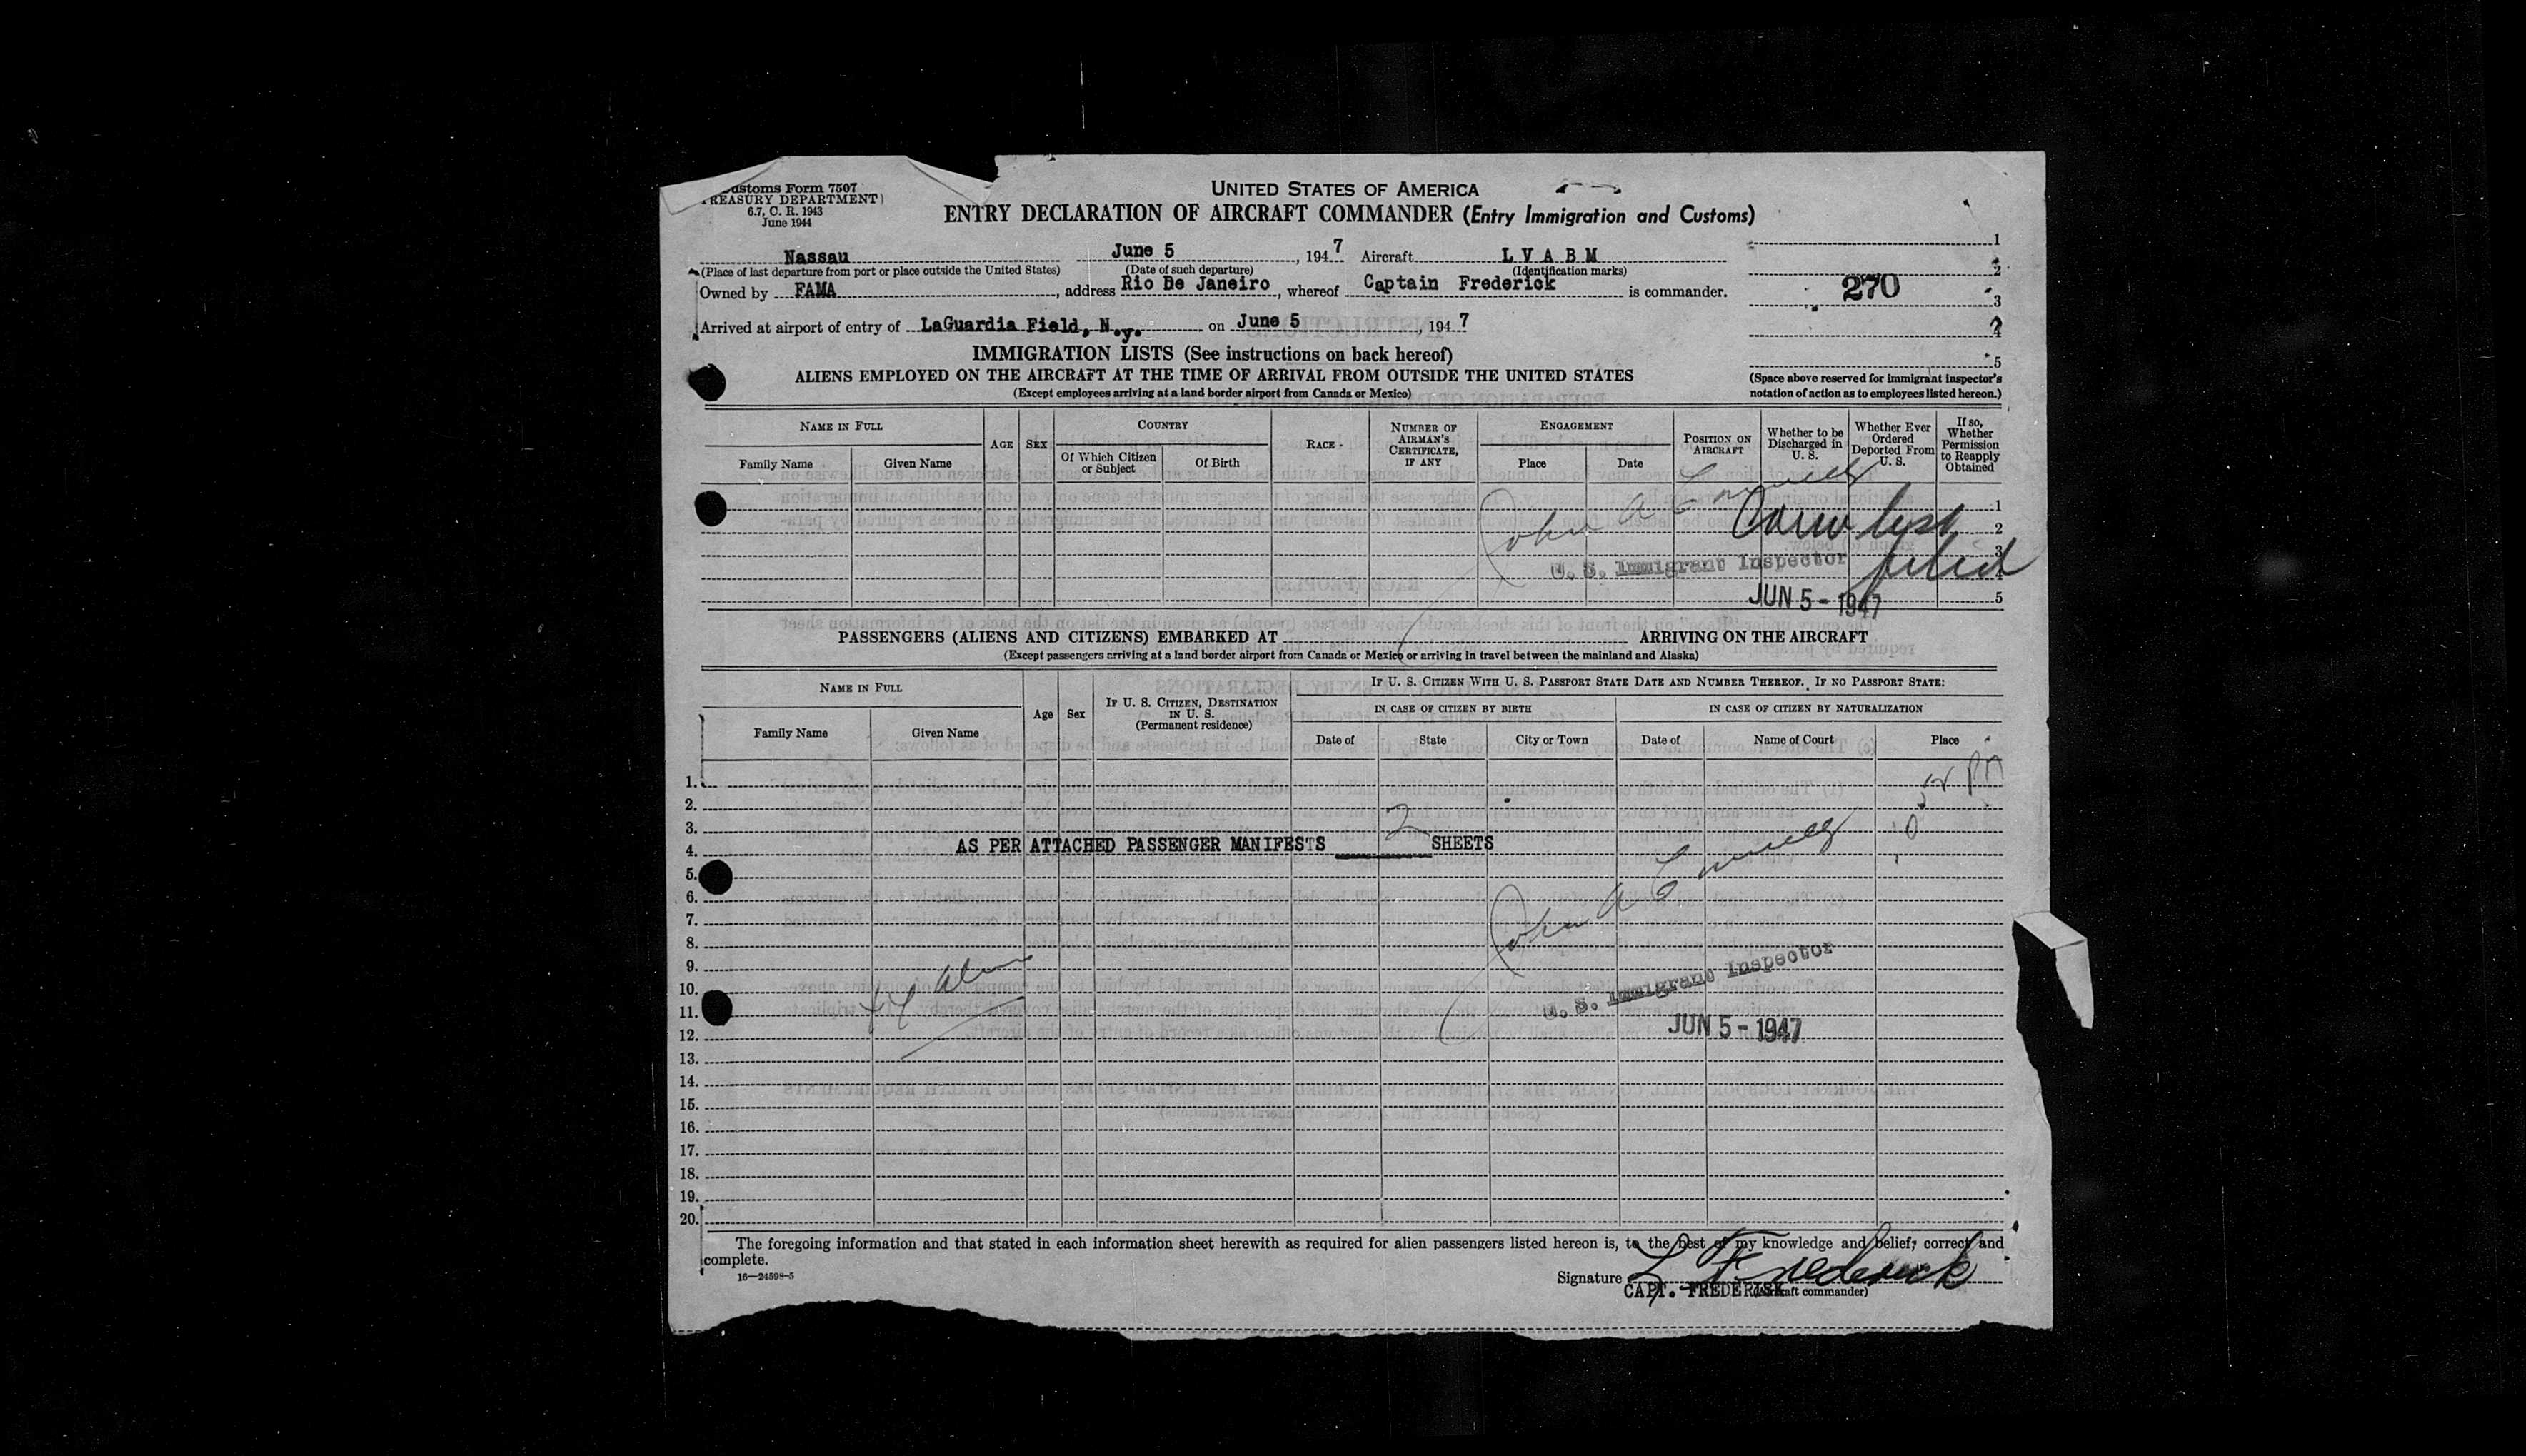 Customs Form 7507
TREASURY DEPARTMENT)
6.7, C. R. 1943
June 1944
UNITED STATES OF AMERICA
ENTRY DECLARATION OF AIRCRAFT COMMANDER (Entry Immigration and Customs)
Nassau June 5, 1947 Aircraft L V A B M
(Place of last departure from port or place outside the United States) (Date of such departure) (Identification marks)
Owned by FAMA, address Rio De Janeiro, whereof Captain Frederick is commander.
Arrived at airport of entry of LaGuardia Field, N.y. on June 5, 1947
1
2
270
3
4
5
(Space above reserved for immigrant inspector's
notation of action as to employees listed hereon.)
IMMIGRATION LISTS (See instructions on back hereof)
ALIENS EMPLOYED ON THE AIRCRAFT AT THE TIME OF ARRIVAL FROM OUTSIDE THE UNITED STATES
(Except employees arriving at a land border airport from Canada or Mexico)
NAME IN FULL
Family Name
Given Name
AGE
SEX
COUNTRY
Of Which Citizen
or Subject
Of Birth
RACE
NUMBER OF
AIRMAN'S
CERTIFICATE,
IF ANY
ENGAGEMENT
Place
Date
POSITION ON
AIRCRAFT
Whether to be
Discharged in
U. S.
Whether Ever
Ordered
Deported From
U. S.
If so,
Whether
Permission
to Reapply
Obtained
1
2
3
4
5
John A
list
filed
U. S. Immigrant Inspector
JUN 5 - 1947
PASSENGERS (ALIENS AND CITIZENS) EMBARKED AT ARRIVING ON THE AIRCRAFT
(Except passengers arriving at a land border airport from Canada or Mexico or arriving in travel between the mainland and Alaska)
NAME IN FULL
Family Name
Given Name
Age
Sex
IF U. S. CITIZEN, DESTINATION
IN U. S.
(Permanent residence)
IF U. S. CITIZEN WITH U. S. PASSPORT STATE DATE AND NUMBER THEREOF. IF NO PASSPORT STATE:
IN CASE OF CITIZEN BY BIRTH
IN CASE OF CITIZEN BY NATURALIZATION
Date of
State
City or Town
Date of
Name of Court
Place
1.
2.
3.
4. AS PER ATTACHED PASSENGER MANIFESTS 2 SHEETS
5.
6.
7.
8.
9.
10.
11.
12.
13.
14.
15.
16.
17.
18.
19.
20.
John A
U. S. Immigrant Inspector
JUN 5 - 1947
The foregoing information and that stated in each information sheet herewith as required for alien passengers listed hereon is, to the best of my knowledge and belief, correct and
complete.
16—24598-5
Signature L Frederick
CAPT. FREDERISK
(Aircraft commander)